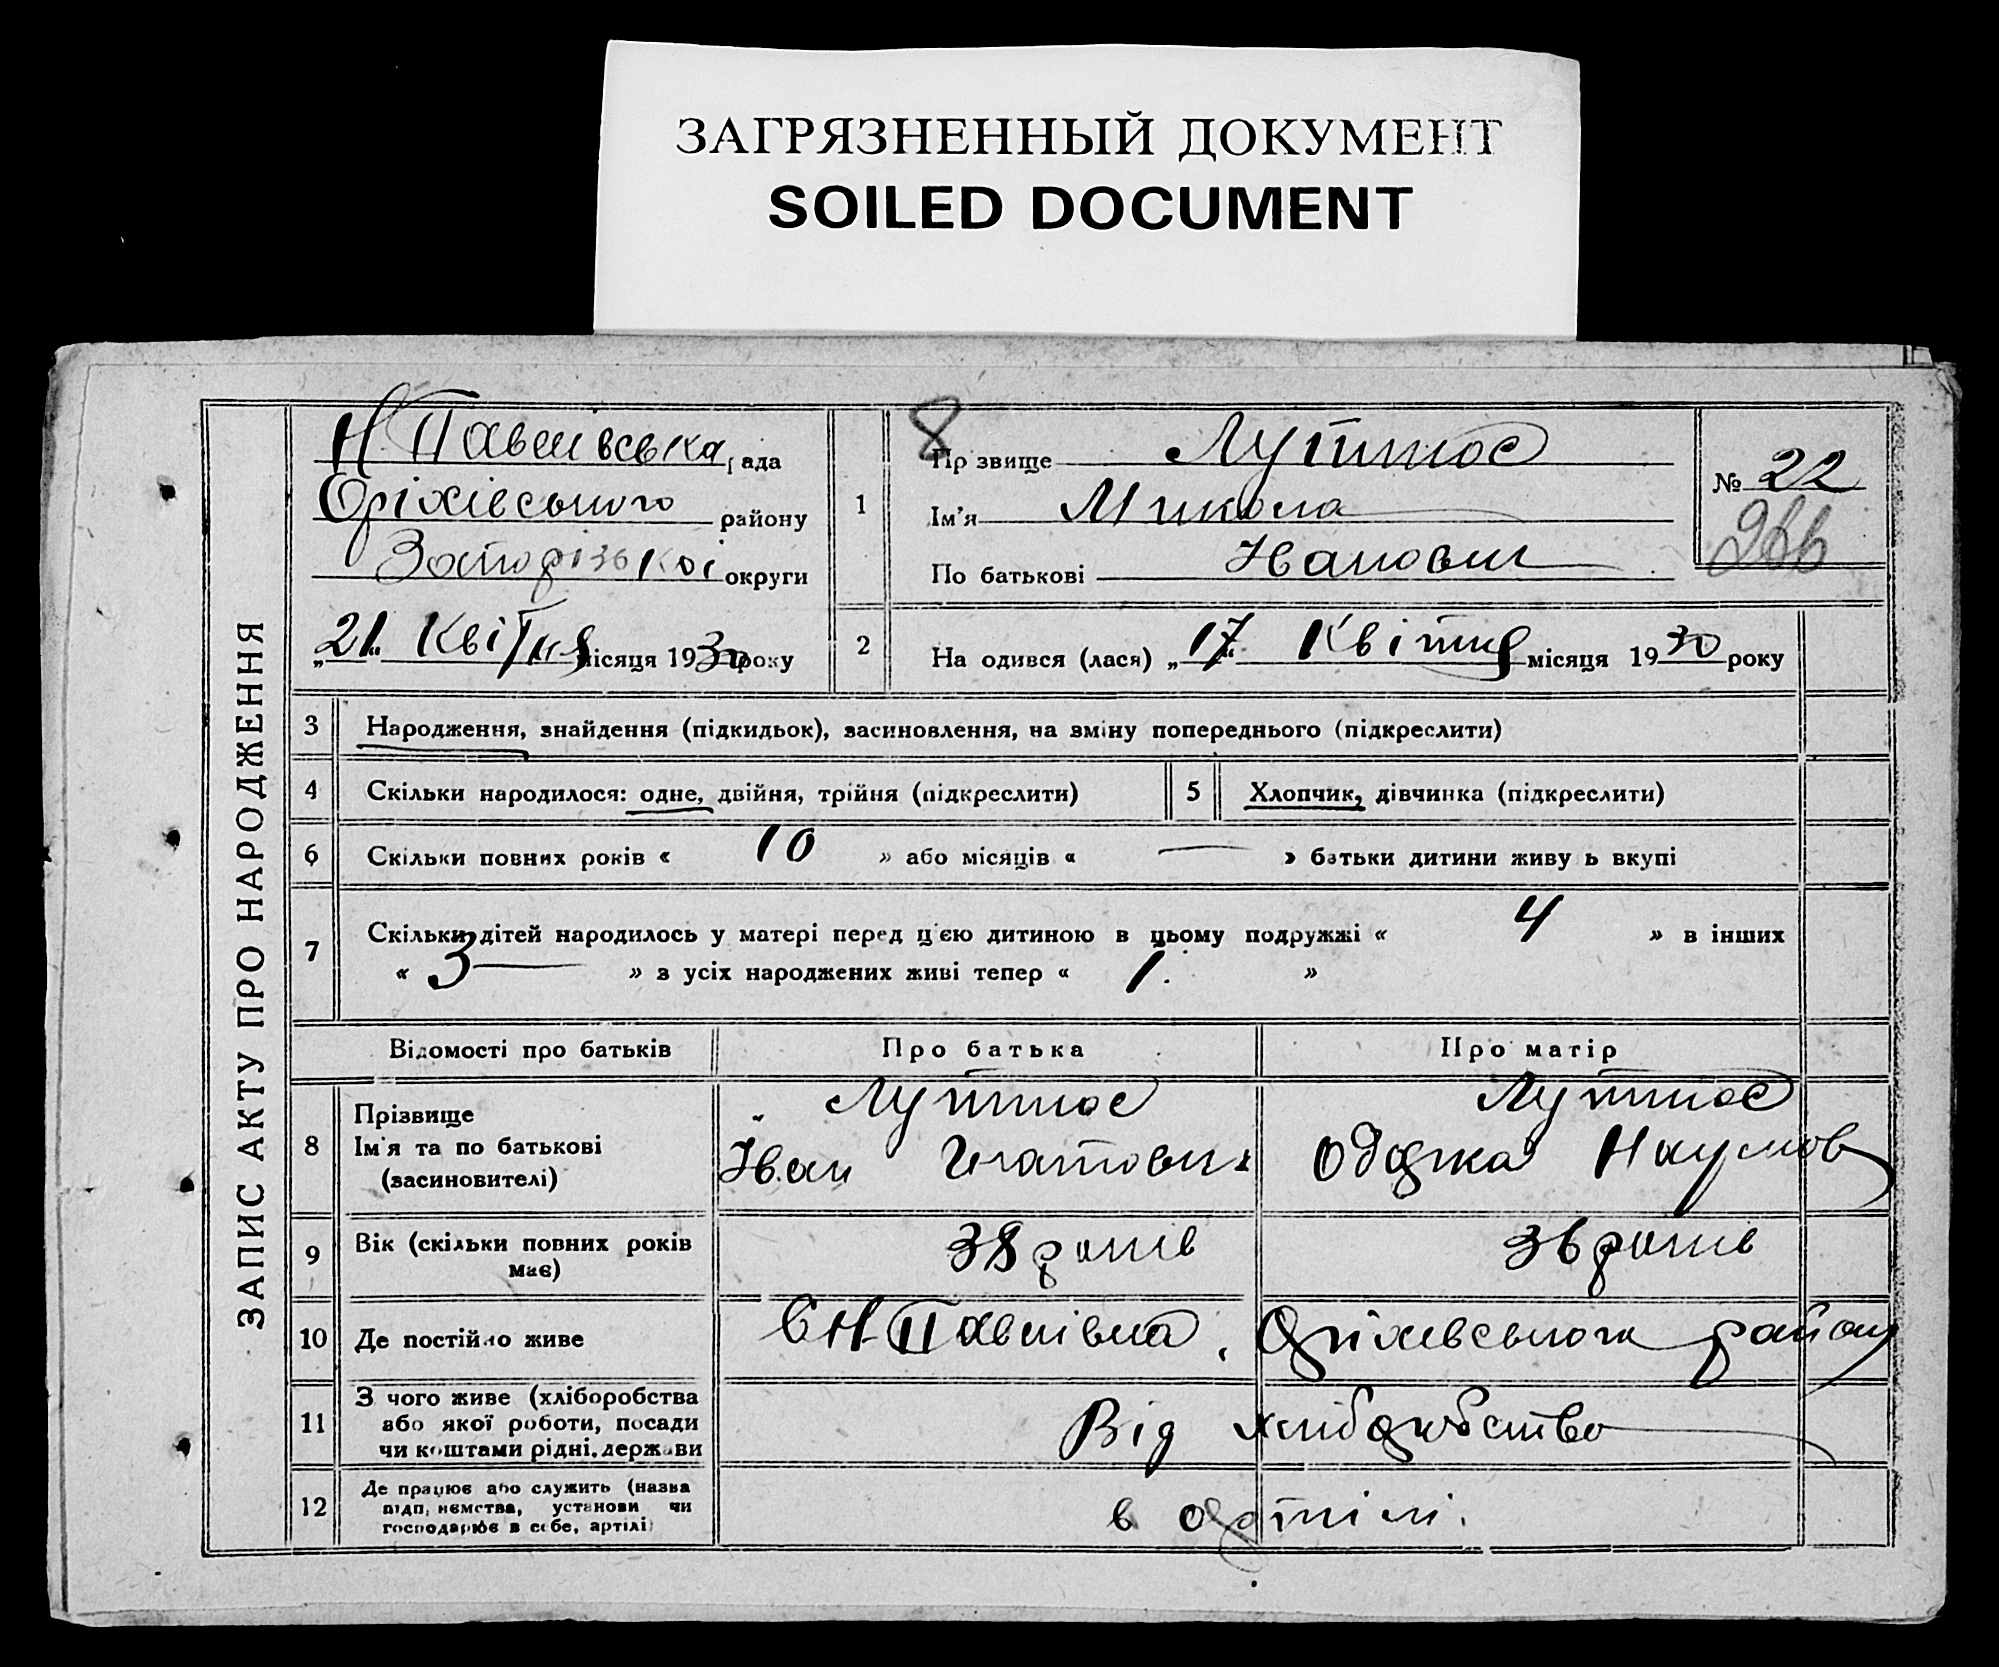 ЗАГРЯЗНЕННЫЙ ДОКУМЕНТ
SOILED DOCUMENT
ЗАПИС АКТУ ПРО НАРОДЖЕННЯ
Н Павлівська рада
Оріхівського району
Запорізької округи
„21“ Квітня місяця 1930 року
8
1 Прізвище
Ім'я Микола
По батькові Іванович
№ 22
2 На одився (лася) „17“ Квітня місяця 1930 року
3 Народження, знайдення (підкидьок), засиновлення, на зміну попереднього (підкреслити)
4 Скільки народилося: одне, двійня, трійня (підкреслити)
5 Хлопчик, дівчинка (підкреслити)
6 Скільки повних років « 10 » або місяців « — » батьки дитини живу ь вкупі
7 Скільки дітей народилось у матері перед цією дитиною в цьому подружжі « 4 » в інших
« 3 — » з усіх народжених живі тепер « 1. »
Відомості про батьків Про батька Про матір
8 Прізвище
Ім'я та по батькові
(засиновителі)
Іван Гнатович
Наумов
9 Вік (скільки повних років
має)
38 років
36 років
10 Де постійно живе
С Н Павлівка, Оріхівського району
11 З чого живе (хліборобства
або якої роботи, посади
чи коштами рідні, держави
Від хліборобства
12 Де працює або служить (назва
підп, иємства, установи чи
господарює в себе, артілі)
в артілі.